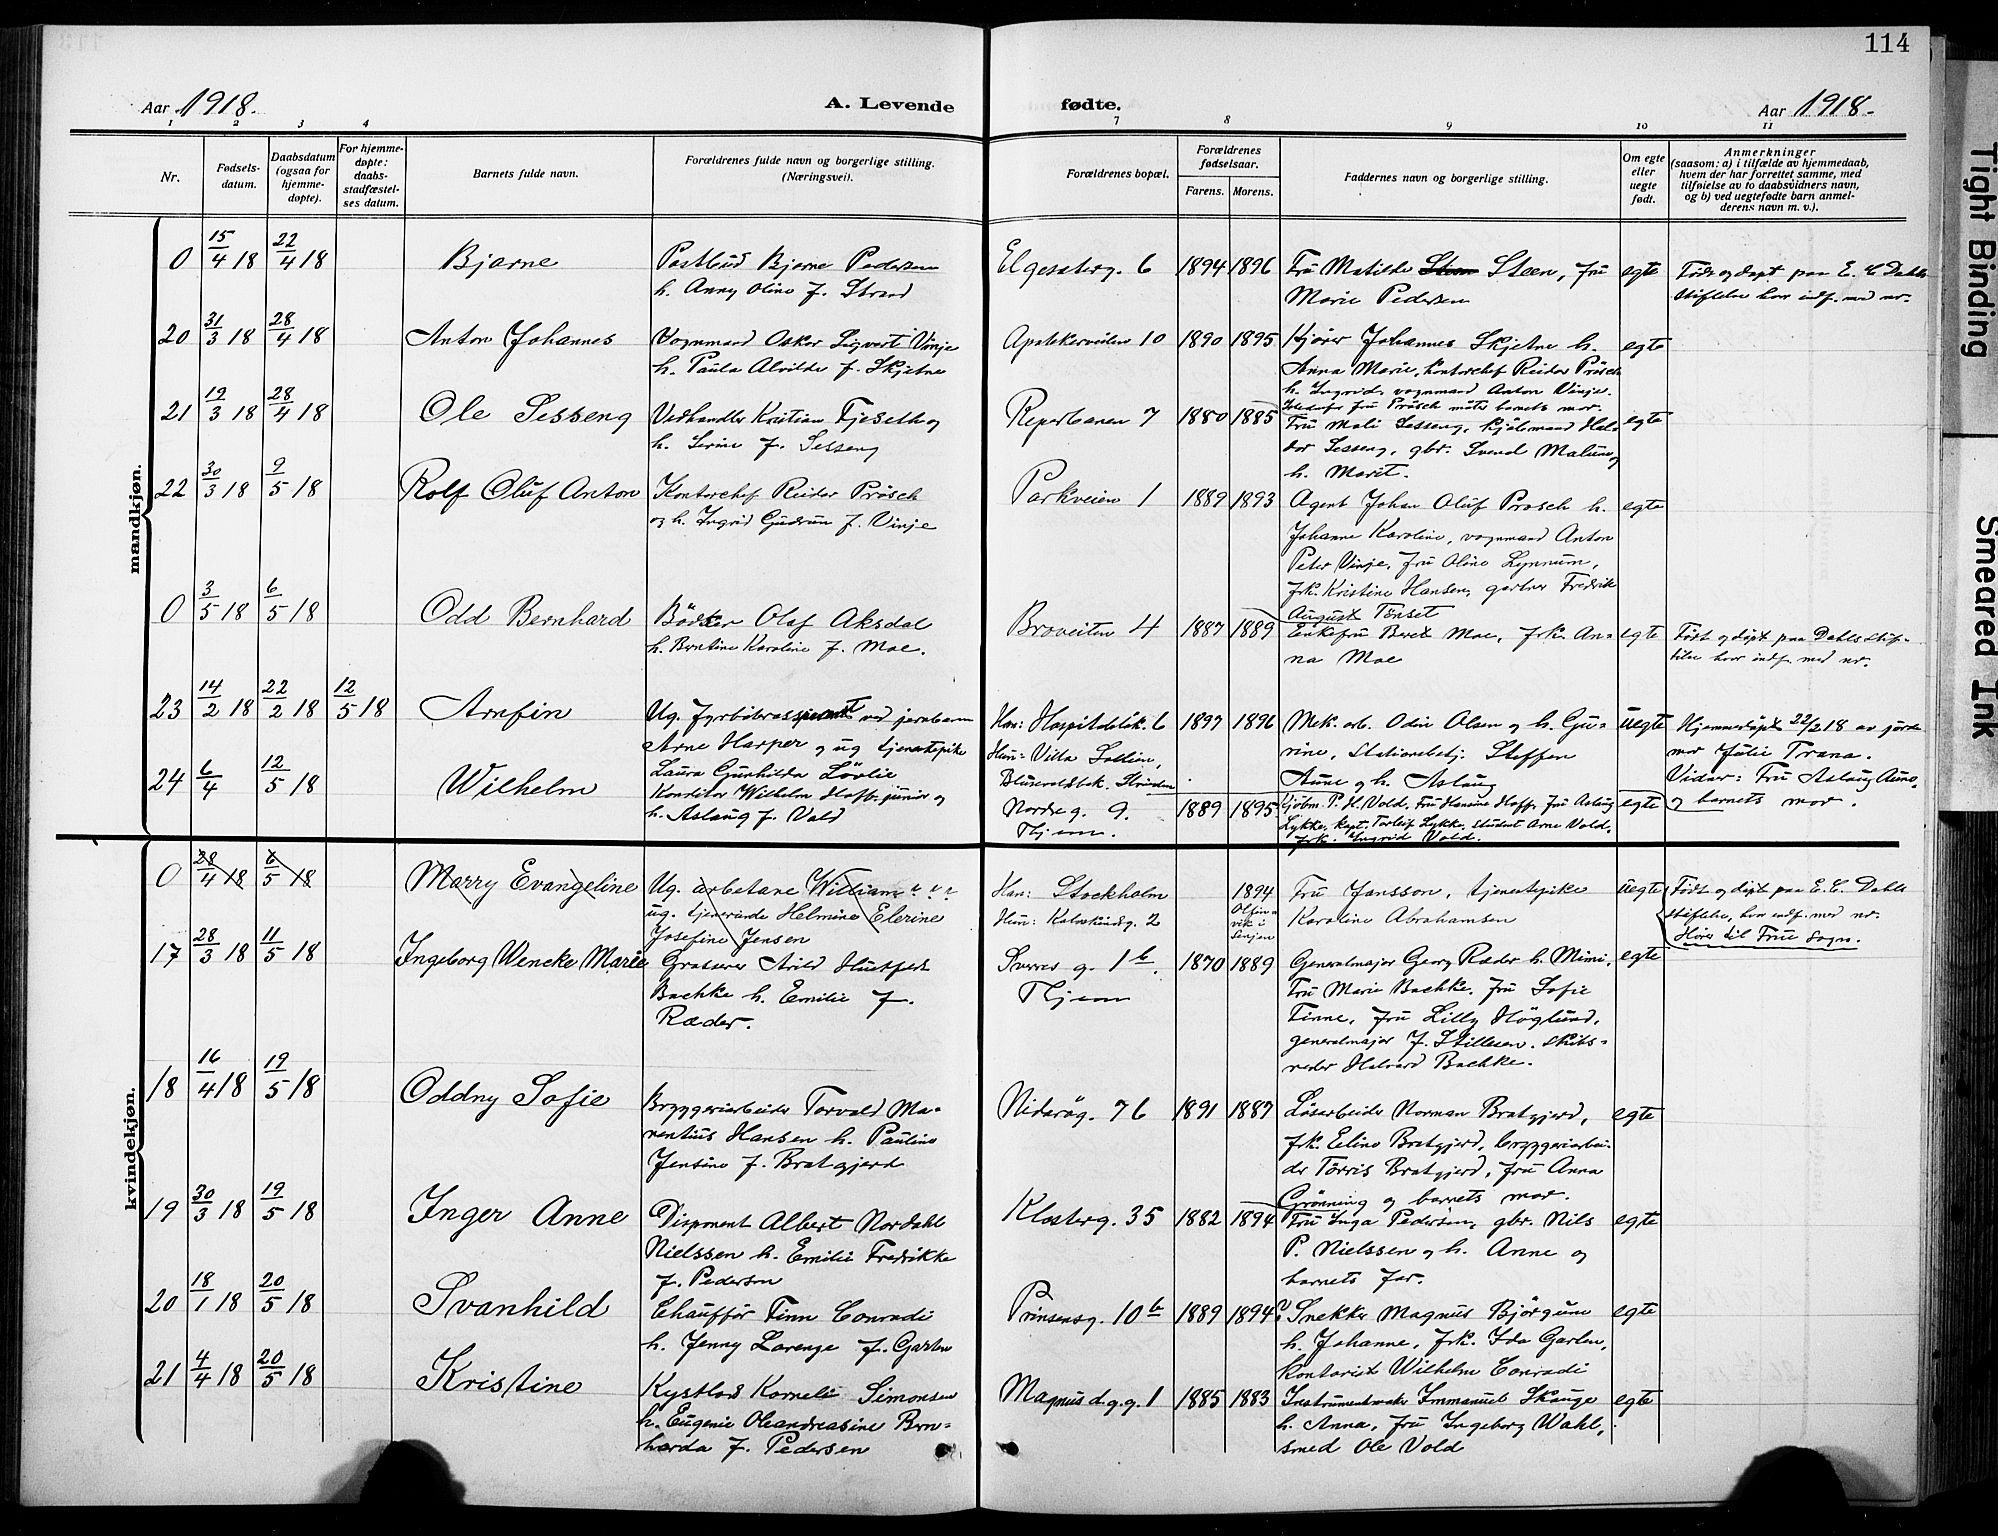 114
Aar 1918.
A. Levende
fødte.
Aar 1918.
1 2 3 4 7 8 9 10 11
Nr.
Fødsels-
datum.
Daabsdatum
(ogsaa for
hjemme-
døpte).
For hjemme-
døpte:
daabs-
stadfæstel-
ses datum.
Barnets fulde navn.
Forældrenes fulde navn og borgerlige stilling.
(Næringsvei).
Forældrenes bopæl.
Forældrenes
fødselsaar.
Farens. Morens.
Faddernes navn og borgerlige stilling.
Om egte
eller
uegte
født.
Anmerkninger
(saasom: a) i tilfælde av hjemmedaab,
hvem der har forrettet samme, med
tilføielse av to daabsvidners navn,
og b) ved uegtefødte barn anmel-
derens navn m. v.).
mandkjøn.
0 15/4 18 22/4 18 Bjarne
Postbud Bjarne Pedersen
h. Anny Oline f. Strand
Elgesæterg. 6 1894 1896
Fru Matilde Steen, fru
Marie Pedersen
egte
Født og døpt paa E. C. Dahls
stiftelse hvor indf. med nr.
20 31/3 18 28/4 18 Anton Johannes
Vognmand Oskar Sigvart Vinje
h. Paula Alvilde f. Skjetne
Apotekerveiten 10 1890 1895
Kjører Johannes Skjetne h.
Anna Marie, kontorchef Reider Prösch
h. Ingrid, vognmand Anton Vinje.
Istedenfor fru Prösch møtte barnets mor.
egte
21 19/3 18 28/4 18 Ole Sesseng
Vedhandler Kristian Fjeseth og
h. Serine f. Sesseng
Reperbanen 7 1880 1885
Fru Mali Sesseng, kjølemand Hal-
dor Sesseng, gbr. Svend Malum og
h. Marit.
egte
22 30/3 18 9/5 18 Rolf Oluf Anton
Kontorchef Reider Prösch
og h. Ingrid Gudrun f. Vinje
Parkveien 1 1889 1893
Agent Johan Oluf Prosch h.
Johanne Karoline, vognmand Anton
Peter Vinje, fru Oline Lynnum,
frk. Kristine Hansen, gartner Fredrik
August Tønset
egte
0 3/5 18 6/5 18 Odd Bernhard
Bödker Olaf Aksdal
h. Berntine Karoline f. Moe.
Broveiten 4 1887 1889
Enkefru Beret Moe, frk. An-
na Moe
egte
Født og døpt paa Dahls stif-
telse hvor indf. med nr.
23 14/2 18 22/2 18 12/5 18 Arnfin
Ug. fyrbøteraspirant ved jernbanen
Arne Harper og ug tjenestepike
Laura Gunhilda Lövlie
Han: Hospitalsløk. 6 1897 1896
Hun: Villa Sollien,
Blusuvoldsbak. Strinden
Mek. arb. Odin Olsen og h. Gu-
rine, Stationsbetj. Steffen
Aune og h. Aslaug
uegte
Hjemmedøpt 22/2 18 av jorde
mor Julie Trana.
Vidner: Fru Aslaug Aune
og barnets mor.
24 6/4 12/5 18 Wilhelm
Konditor Wilhelm Hoff junior og
h. Aslaug f. Vold
Nordre g. 9. 1889 1895
Thjem.
Kjøbm. P. H. Vold, Fru Hansine Hoff, Fru Aslaug
Lykke, kapt. Torleif Lykke, student Arne Vold,
frk. Ingrid Vold.
egte
kvindekjøn.
0 28/4 18 6/5 18 Marry Evangeline
Ug. arbetare William " " "
ug. tjenerinde Helmine Elerine
Josefine Jensen
Han: Stockholm 1894
Hun: Kalvskindsg. 2
Fru Jansson, tjenestepike
Karoline Abrahamsen
uegte
Født og døpt paa E. C. Dahls
stiftelse, hvor indf. med nr.
Hører til Frue sogn.
17 28/3 18 11/5 18 Ingeborg Wencke Marie
Gratserer Arild Huitfeldt
Bachke h. Emilie f.
Ræder.
Sverres g. 1b. 1870 1889
Thjem
Generalmajor Georg Ræder h. Mimi,
Fru Marie Bachke, fru Sofie
Finne, fru Lilly Höglund,
generalmajor J. Stillesen, skibs-
reder Halvard Bachke.
egte
18 16/4 18 19/5 18 Oddny Sofie
Bryggeriarbeider Torvald Ma-
rentius Hansen h. Pauline
Jensine f. Bratgjerd
Nidarög. 76 1891 1887
Løsarbeider Norman Bratgjerd,
frk. Eline Bratgjerd, bryggeriarbei-
der Torris Bratgjerd, fru Anna
Grønning og barnets mor.
egte
19 30/3 18 19/5 18 Inger Anne
Disponent Albert Nordahl
Nielssen h. Emilie Fredrikke
f. Pedersen
Klosterg. 35 1882 1894
Fru Inga Pedersen, gbr. Nils
P. Nielssen og h. Anne og
barnets far.
egte
20 18/1 18 20/5 18 Svanhild
Chauffør Finn Conradi
h. Jenny Lorenze f. Garten
Prinsensg. 10b 1889 1894?
Snekker Magnus Bjørgum
h. Johanne, frk. Ida Garten,
kontorist Wilhelm Conradi
egte
21 4/4 18 20/5 18 Kristine
Kystlods Korneli Simonsen
h. Eugenie Oleandreasine Bern-
harda f. Pedersen
Magnus d. g. g. 1 1885 1883
Instrumentmaker Immanuel Skauge
h. Anna, fru Ingeborg Wahl,
smed Ole Vold
egte
Tight Binding
Smeared Ink